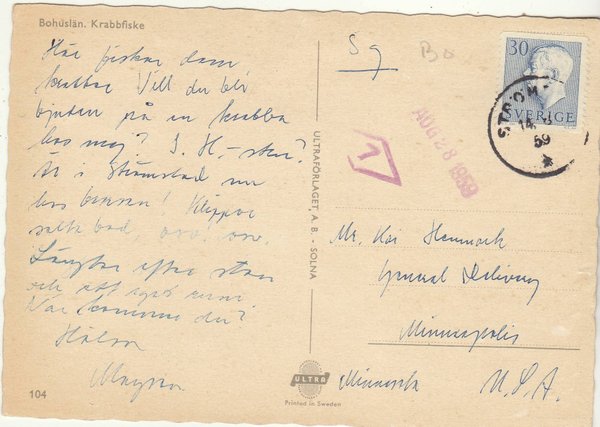 Bohuslän. Krabbfiske
Här fiskar dom
krabbor Vill du bli
bjuden på en krabba
hos mej? I H-sten?
Är i Strömstad nu
hos barnen! Klippor
salta bad, osv. osv.
Längtar efter stan
och att
När kommer du?
Hälsn
104
ULTRAFÖRLAGET, A. B. - SOLNA
ULTRA
Printed in Sweden
Sg
30
SVERIGE
STRÖM
14
59
AUG 28 1959
1
Mr. Kai Hammark
General Delivery
Minneapolis
Minnesota U.S.A.